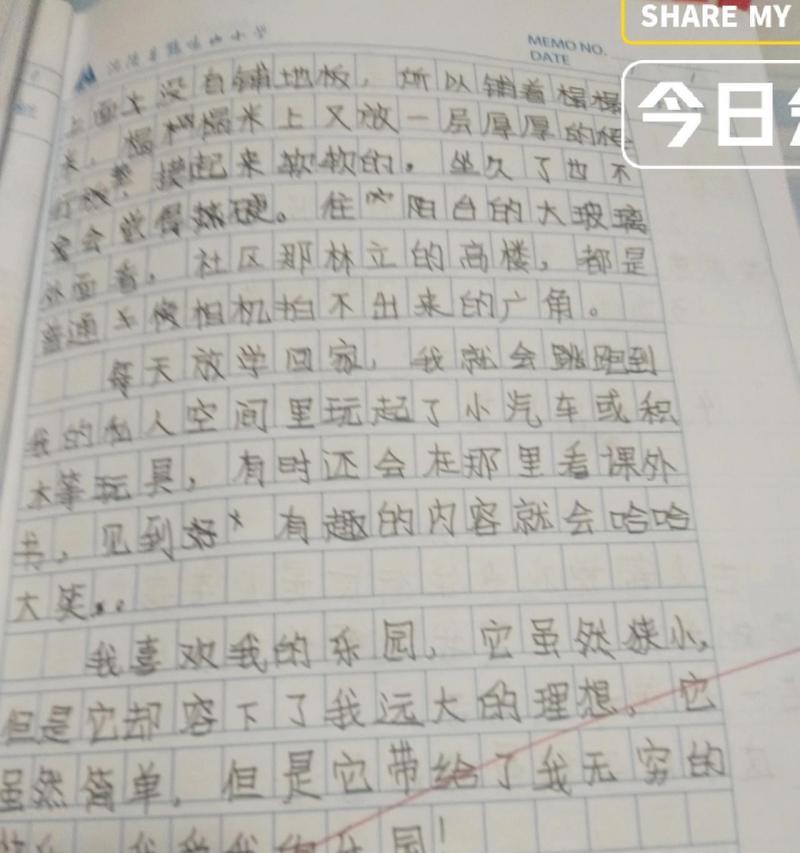 SHARE MY
MEMO NO.
DATE
今日
上面没有铺地板，所以铺着榻榻
米，榻榻米上又放一层厚厚的
摸起来软软的。坐久了也不
会觉得硬。往阳台的大玻璃
外面看，社区那林立的高楼，都是
普通相机拍不出来的广角。
每天放学回家，我就会跳跑到
我的私人空间里玩起了小汽车或积
木等玩具，有时还会在那里看课外
书，见到好有趣的内容就会哈哈
大笑..
我喜欢我的乐园，它虽然狭小，
但是它却容下了我远大的理想。它
虽然简单，但是它带给了我无穷的
乐园！